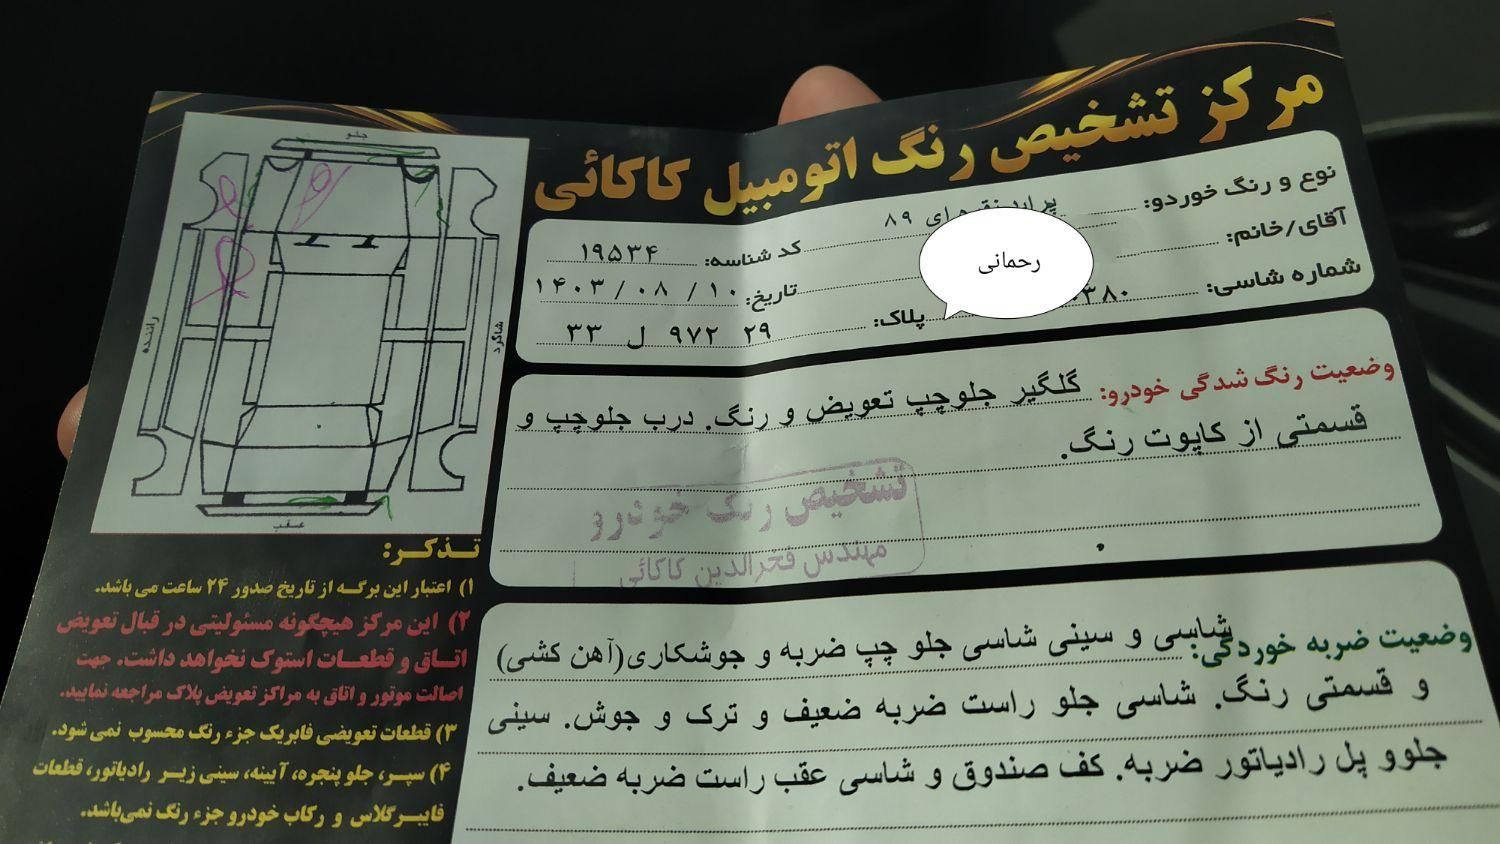 مرکز تشخیص رنگ اتومبیل کاکائی
نوع و رنگ خوردو: پراید نقره ای ۸۹
کد شناسه: ۱۹۵۳۴
آقای/خانم:
رحمانی
تاریخ: ۱۴۰۳/۰۸/۱۰
شماره شاسی: ۳۸۰
پلاک: ۲۹ ۹۷۲ ل ۳۳
وضعیت رنگ شدگی خودرو: گلگیر جلوچپ تعویض و رنگ. درب جلوچپ و
قسمتی از کاپوت رنگ.
تشخیص رنگ خودرو
مهندس فخرالدین کاکائی
وضعیت ضربه خوردگی: شاسی و سینی شاسی جلو چپ ضربه و جوشکاری(آهن کشی)
و قسمتی رنگ. شاسی جلو راست ضربه ضعیف و ترک و جوش. سینی
جلوو پل رادیاتور ضربه. کف صندوق و شاسی عقب راست ضربه ضعیف.
جلو
راننده
شاگرد
عقب
تذکر:
۱) اعتبار این برگه از تاریخ صدور ۲۴ ساعت می باشد.
۲) این مرکز هیچگونه مسئولیتی در قبال تعویض
اتاق و قطعات استوک نخواهد داشت. جهت
اصالت موتور و اتاق به مراکز تعویض پلاک مراجعه نمایید.
۳) قطعات تعویضی فابریک جزء رنگ محسوب نمی شود.
۴) سپر، جلو پنجره، آیینه، سینی زیر رادیاتور، قطعات
فایبرگلاس و رکاب خودرو جزء رنگ نمی‌باشد.